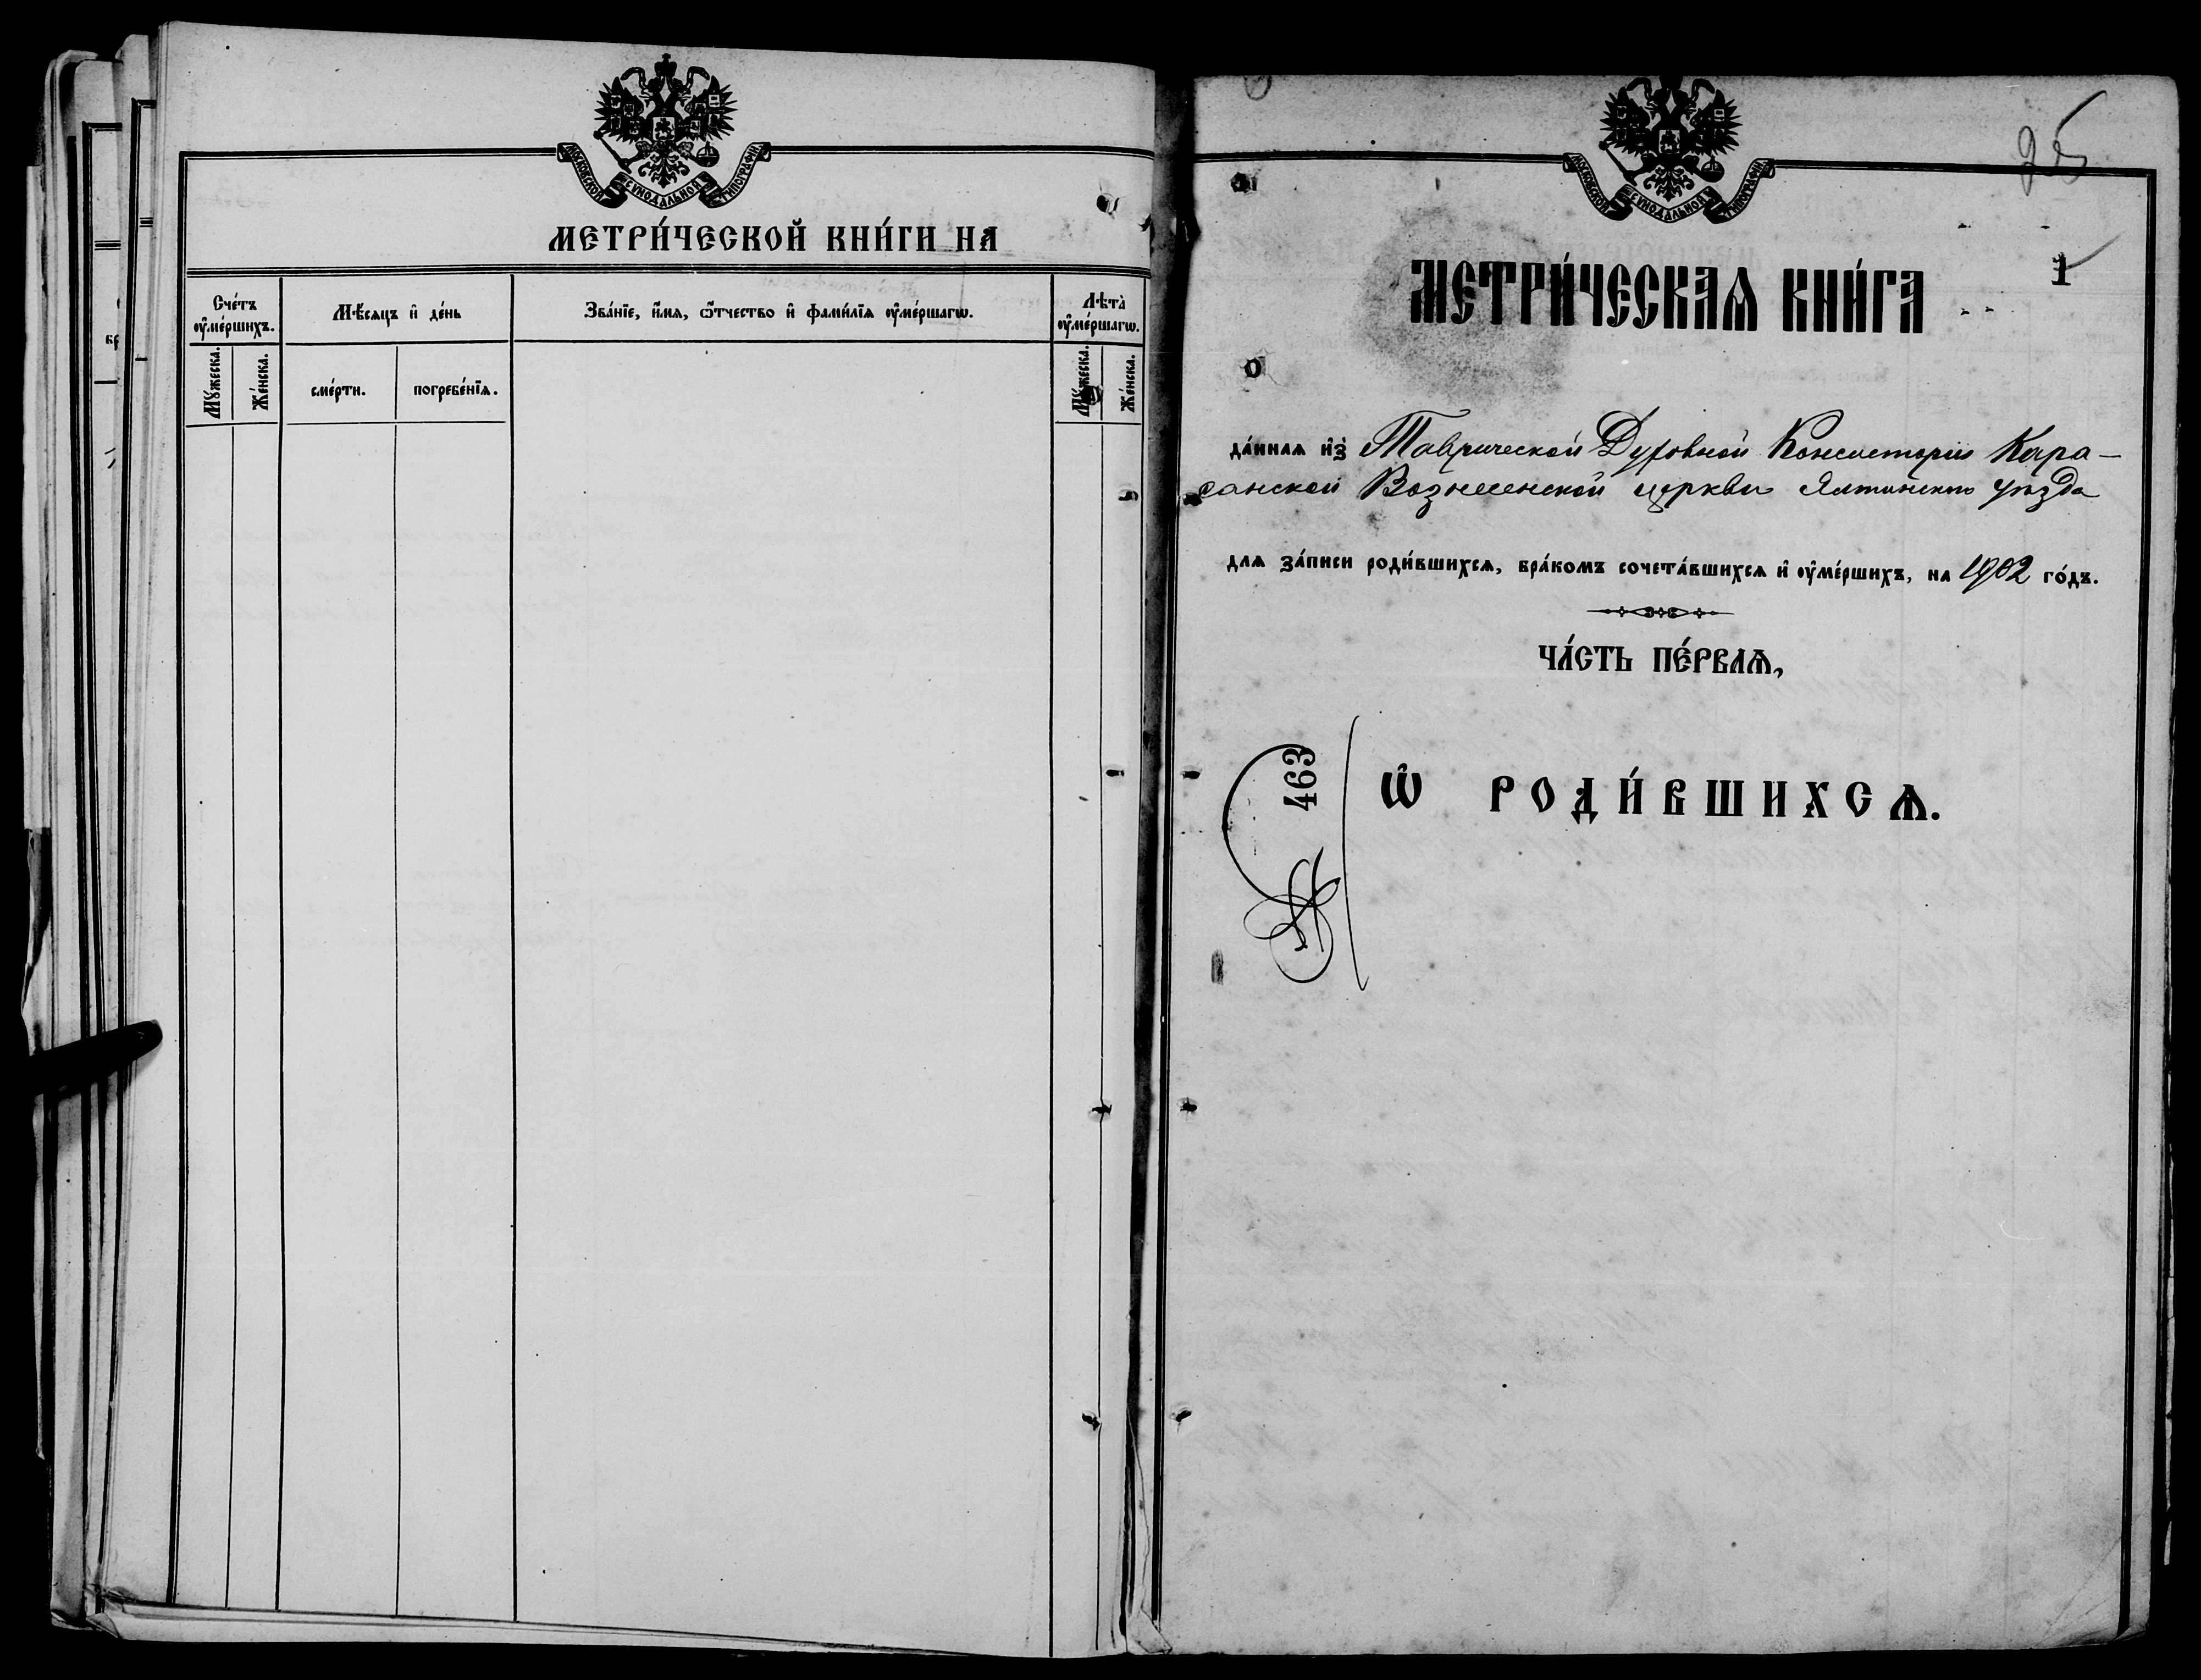 МОСКОВСКОЙ СѴНОДАЛЬНОЙ ТИПОГРАФІИ
МЕТРИ́ЧЕСКОЙ КНИ́ГИ НА
Сче́тъ ᲂу҆ме́ршихъ.
Мѣ́сяцъ и҆ де́нь
Зва́нїе, и҆́мѧ, ѻ҆́тчество и҆ фами́лїѧ ᲂу҆ме́ршагѡ.
Лѣ́та ᲂу҆ме́ршагѡ.
Мꙋ́жеска.
Же́нска.
сме́рти.
погребе́нїѧ.
Мꙋ́жеска.
Же́нска.
МОСКОВСКОЙ СѴНОДАЛЬНОЙ ТИПОГРАФІИ
25
1
МЕТРИ́ЧЕСКАѦ КНИ́ГА
да́ннаѧ и҆з̾ Таврической Духовной Консисторіи Кара-
санской Вознесенской церкви Ялтинскаго уѣзда
для за́писи роди́вшихсѧ, бра́комъ сочета́вшихсѧ и҆ ᲂу҆ме́ршихъ, на 1902 го́дъ.
ЧА́СТЬ ПЕ́РВАѦ,
463
Ѡ҆ РОДИ́ВШИХСѦ.